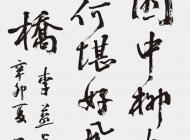 園中柳
何堪好風
橋
李益
辛卯夏